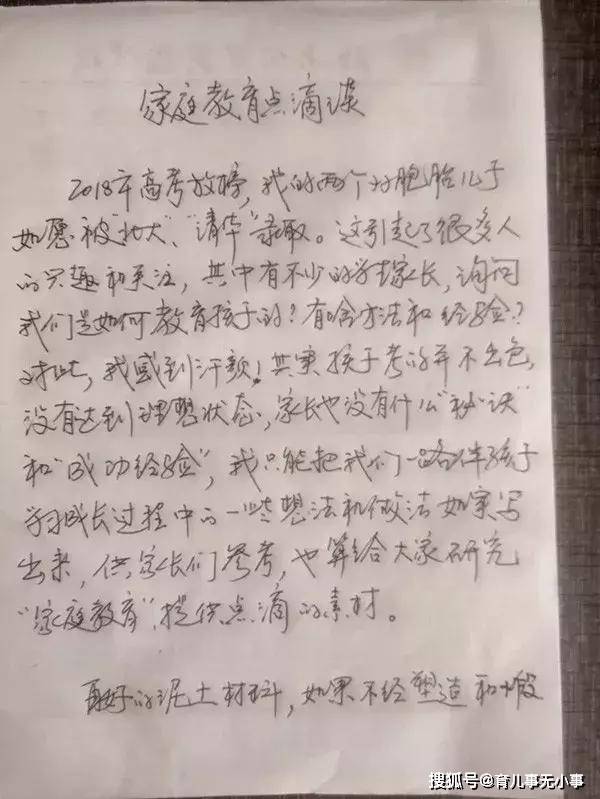 家庭教育点滴谈
2018年高考放榜，我的两个双胞胎儿子
如愿被"北大"、"清华"录取。这引起了很多人
的兴趣和关注，其中有不少的学生家长，询问
我们是如何教育孩子的？有啥方法和经验？
对此，我感到汗颜！其实孩子考的并不出色，
没有达到理想状态，家长也没有什么"秘诀"
和"成功经验"，我只能把我们一路伴孩子
学习成长过程中的一些想法和做法如实写
出来，供家长们参考，也算给大家研究
"家庭教育"提供点滴的素材。
再好的泥土材料，如果不经塑造和煅
搜狐号@育儿事无小事